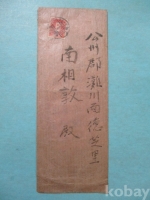 公州郡灘川面德芝里
南相敦 殿
kobay